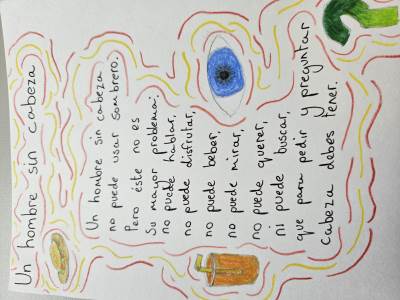 Un hombre sin cabeza
Un hombre sin cabeza
no puede usar sombrero.
Pero éste no es
su mayor problema:
no puede hablar,
no puede disfrutar,
no puede beber,
no puede mirar,
no puede querer,
ni puede buscar,
que para pedir y preguntar
cabeza debes tener.